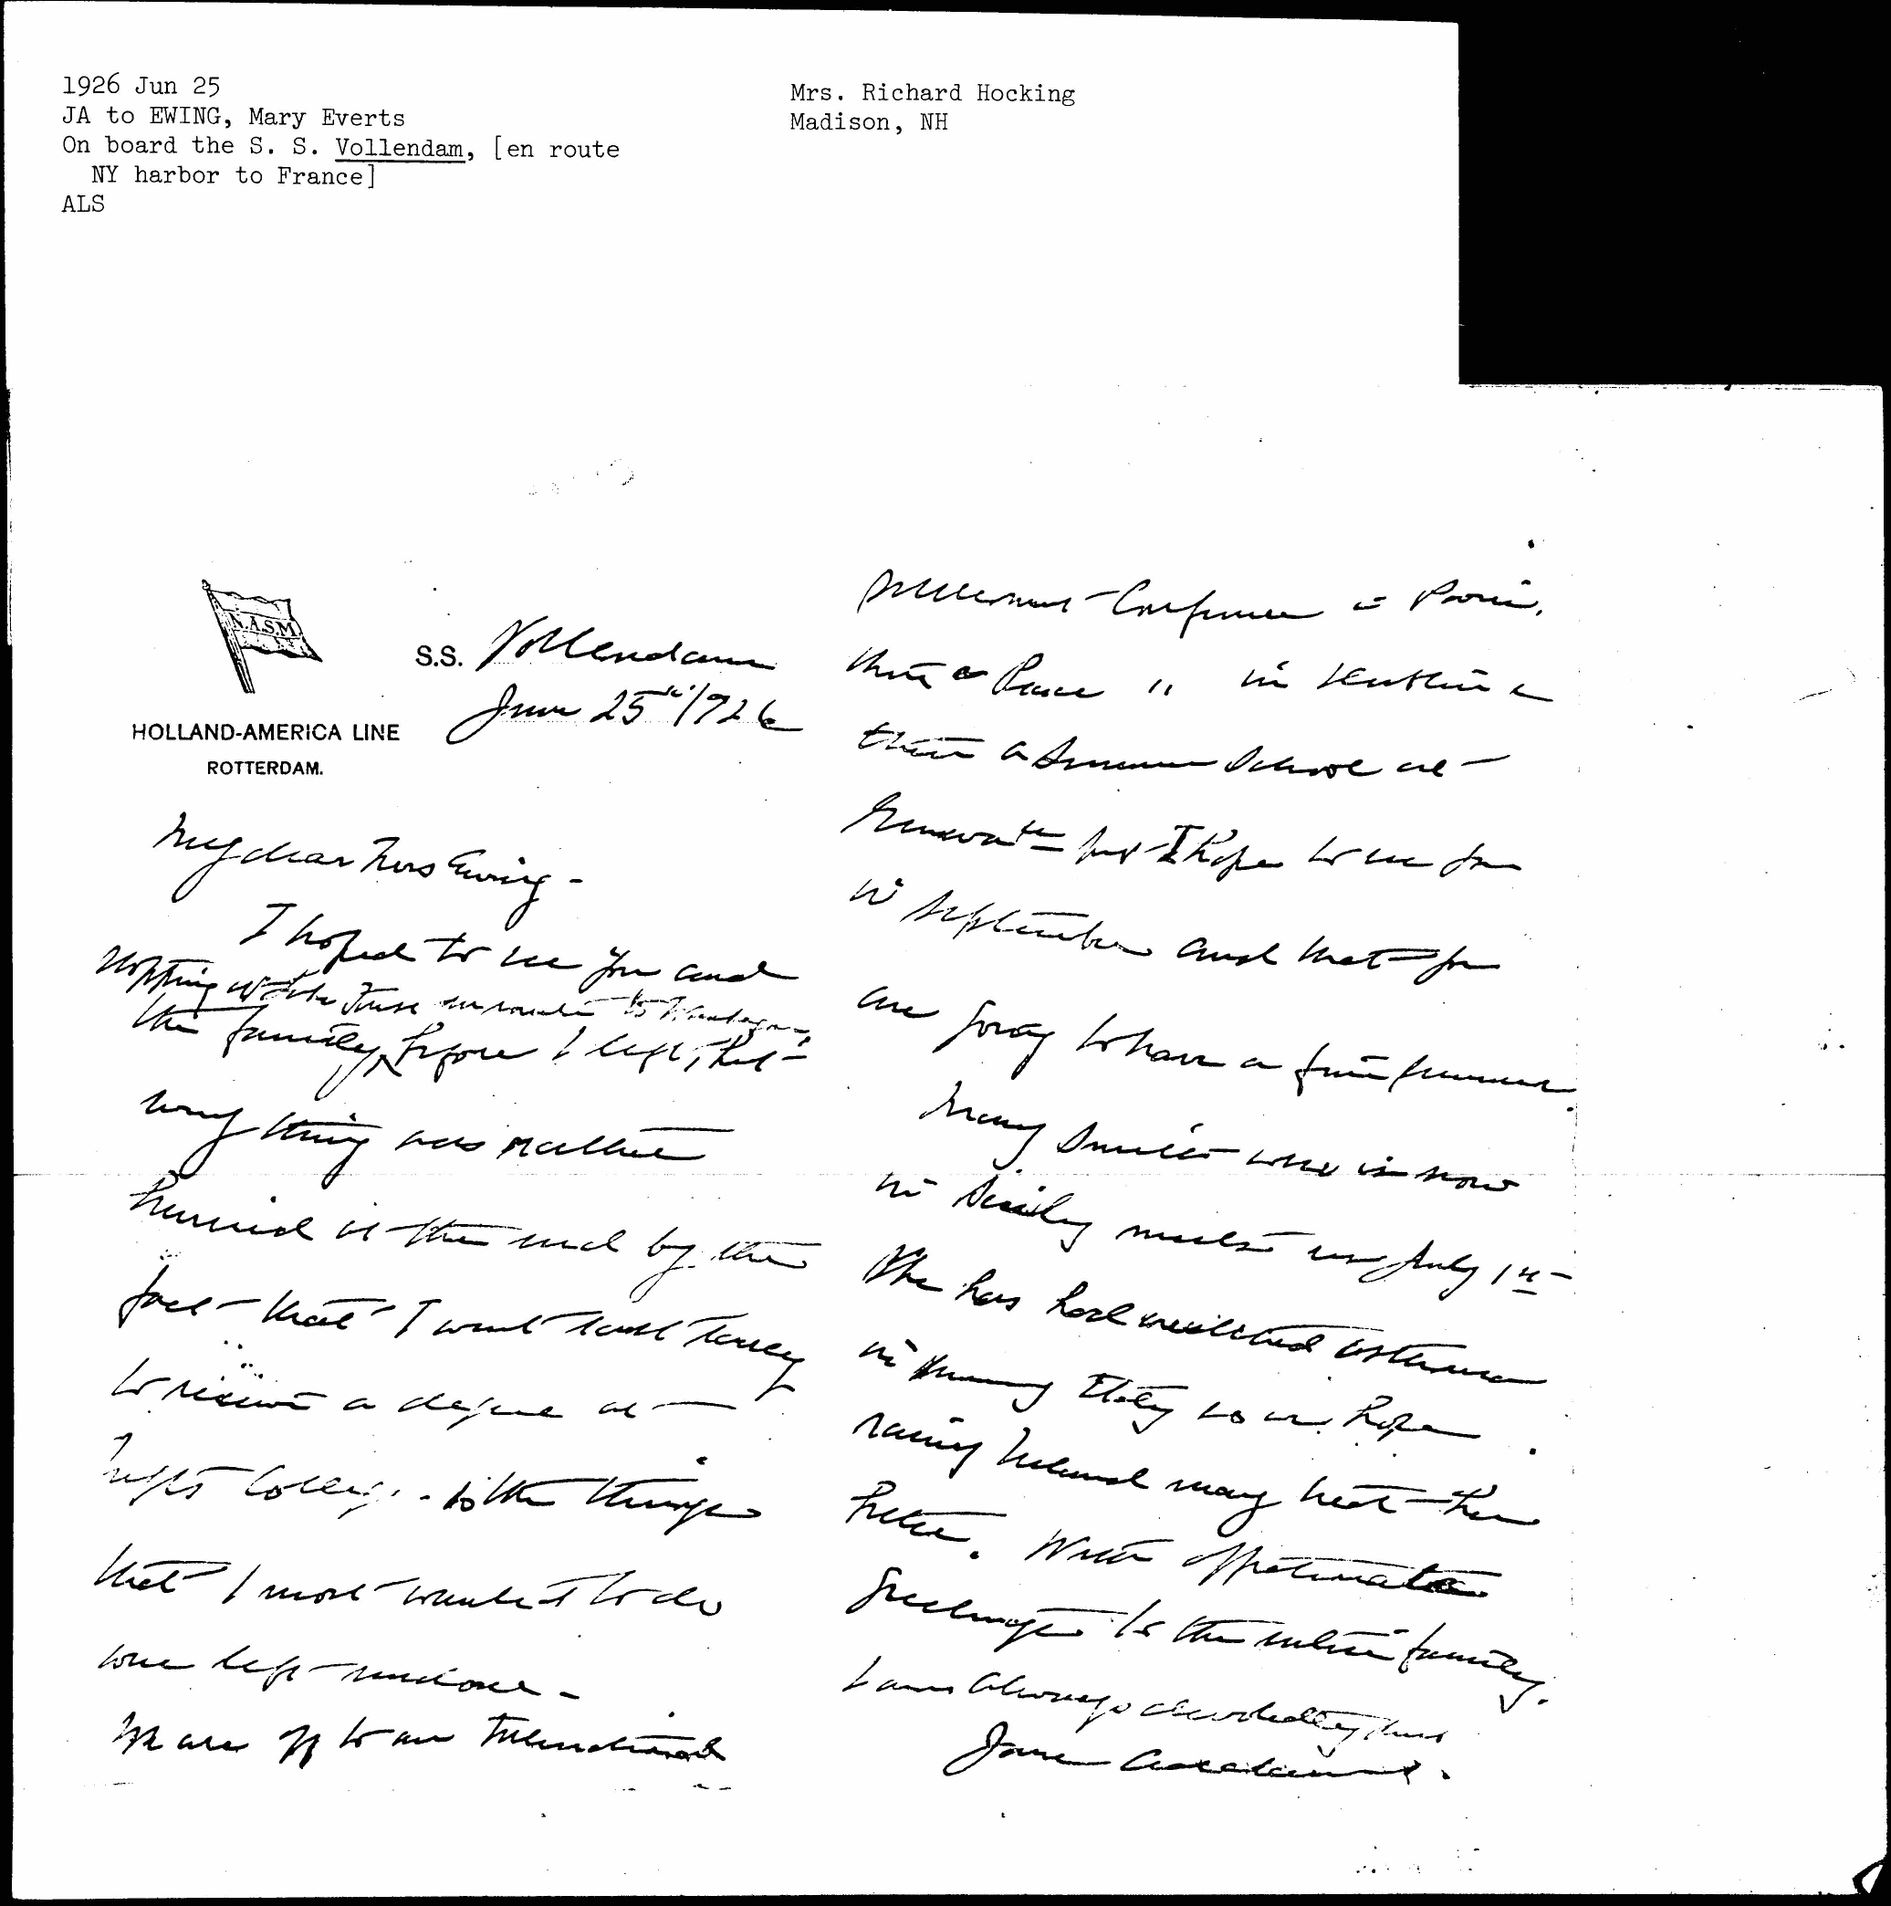 1926 Jun 25
JA to EWING, Mary Everts
On board the S. S. Vollendam, [en route
NY harbor to France]
ALS
Mrs. Richard Hocking
Madison, NH
N.A.S.M.
HOLLAND-AMERICA LINE
ROTTERDAM.
S.S. Vollendam
June 25th/1926
My dear Mrs Ewing -
I hoped to see you and
stopping at the House en route to
the family before I left, but
thing was rather
hurried at the end by the
fact that I went
to receive a degree at
Tufts College - so the things
that I most wanted to do
were left undone -
We are off to an International
Conference in Paris,
then a Peace " in Dublin &
then a Summer School at
Geneva but I hope to see you
in September and that you
are going to have a fine summer.
Mary Smith who is now
in Sicily meets us July 1st
She has had wretched asthma
in Italy so we hope
rainy Ireland may treat her
better. With affectionate
greetings to the entire family.
I am always devotedly yours
Jane Addams.